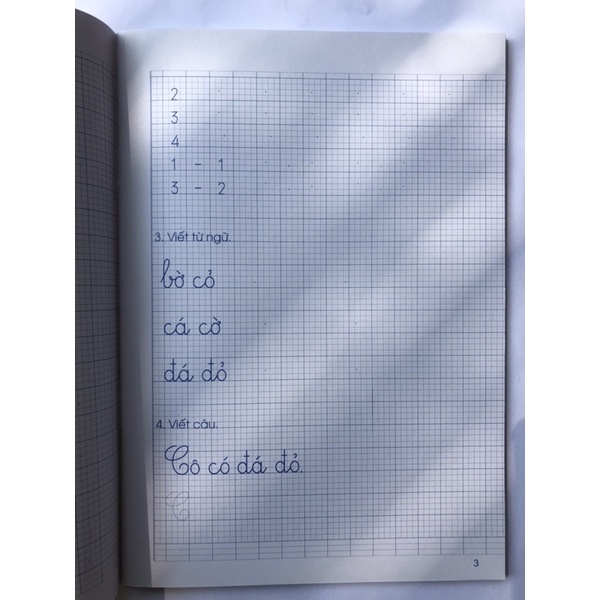 2
3
4
1 - 1
3 - 2
3. Viết từ ngữ.
bờ cỏ
cá cờ
đá đỏ
4. Viết câu.
Cô có đá đỏ.
C
3